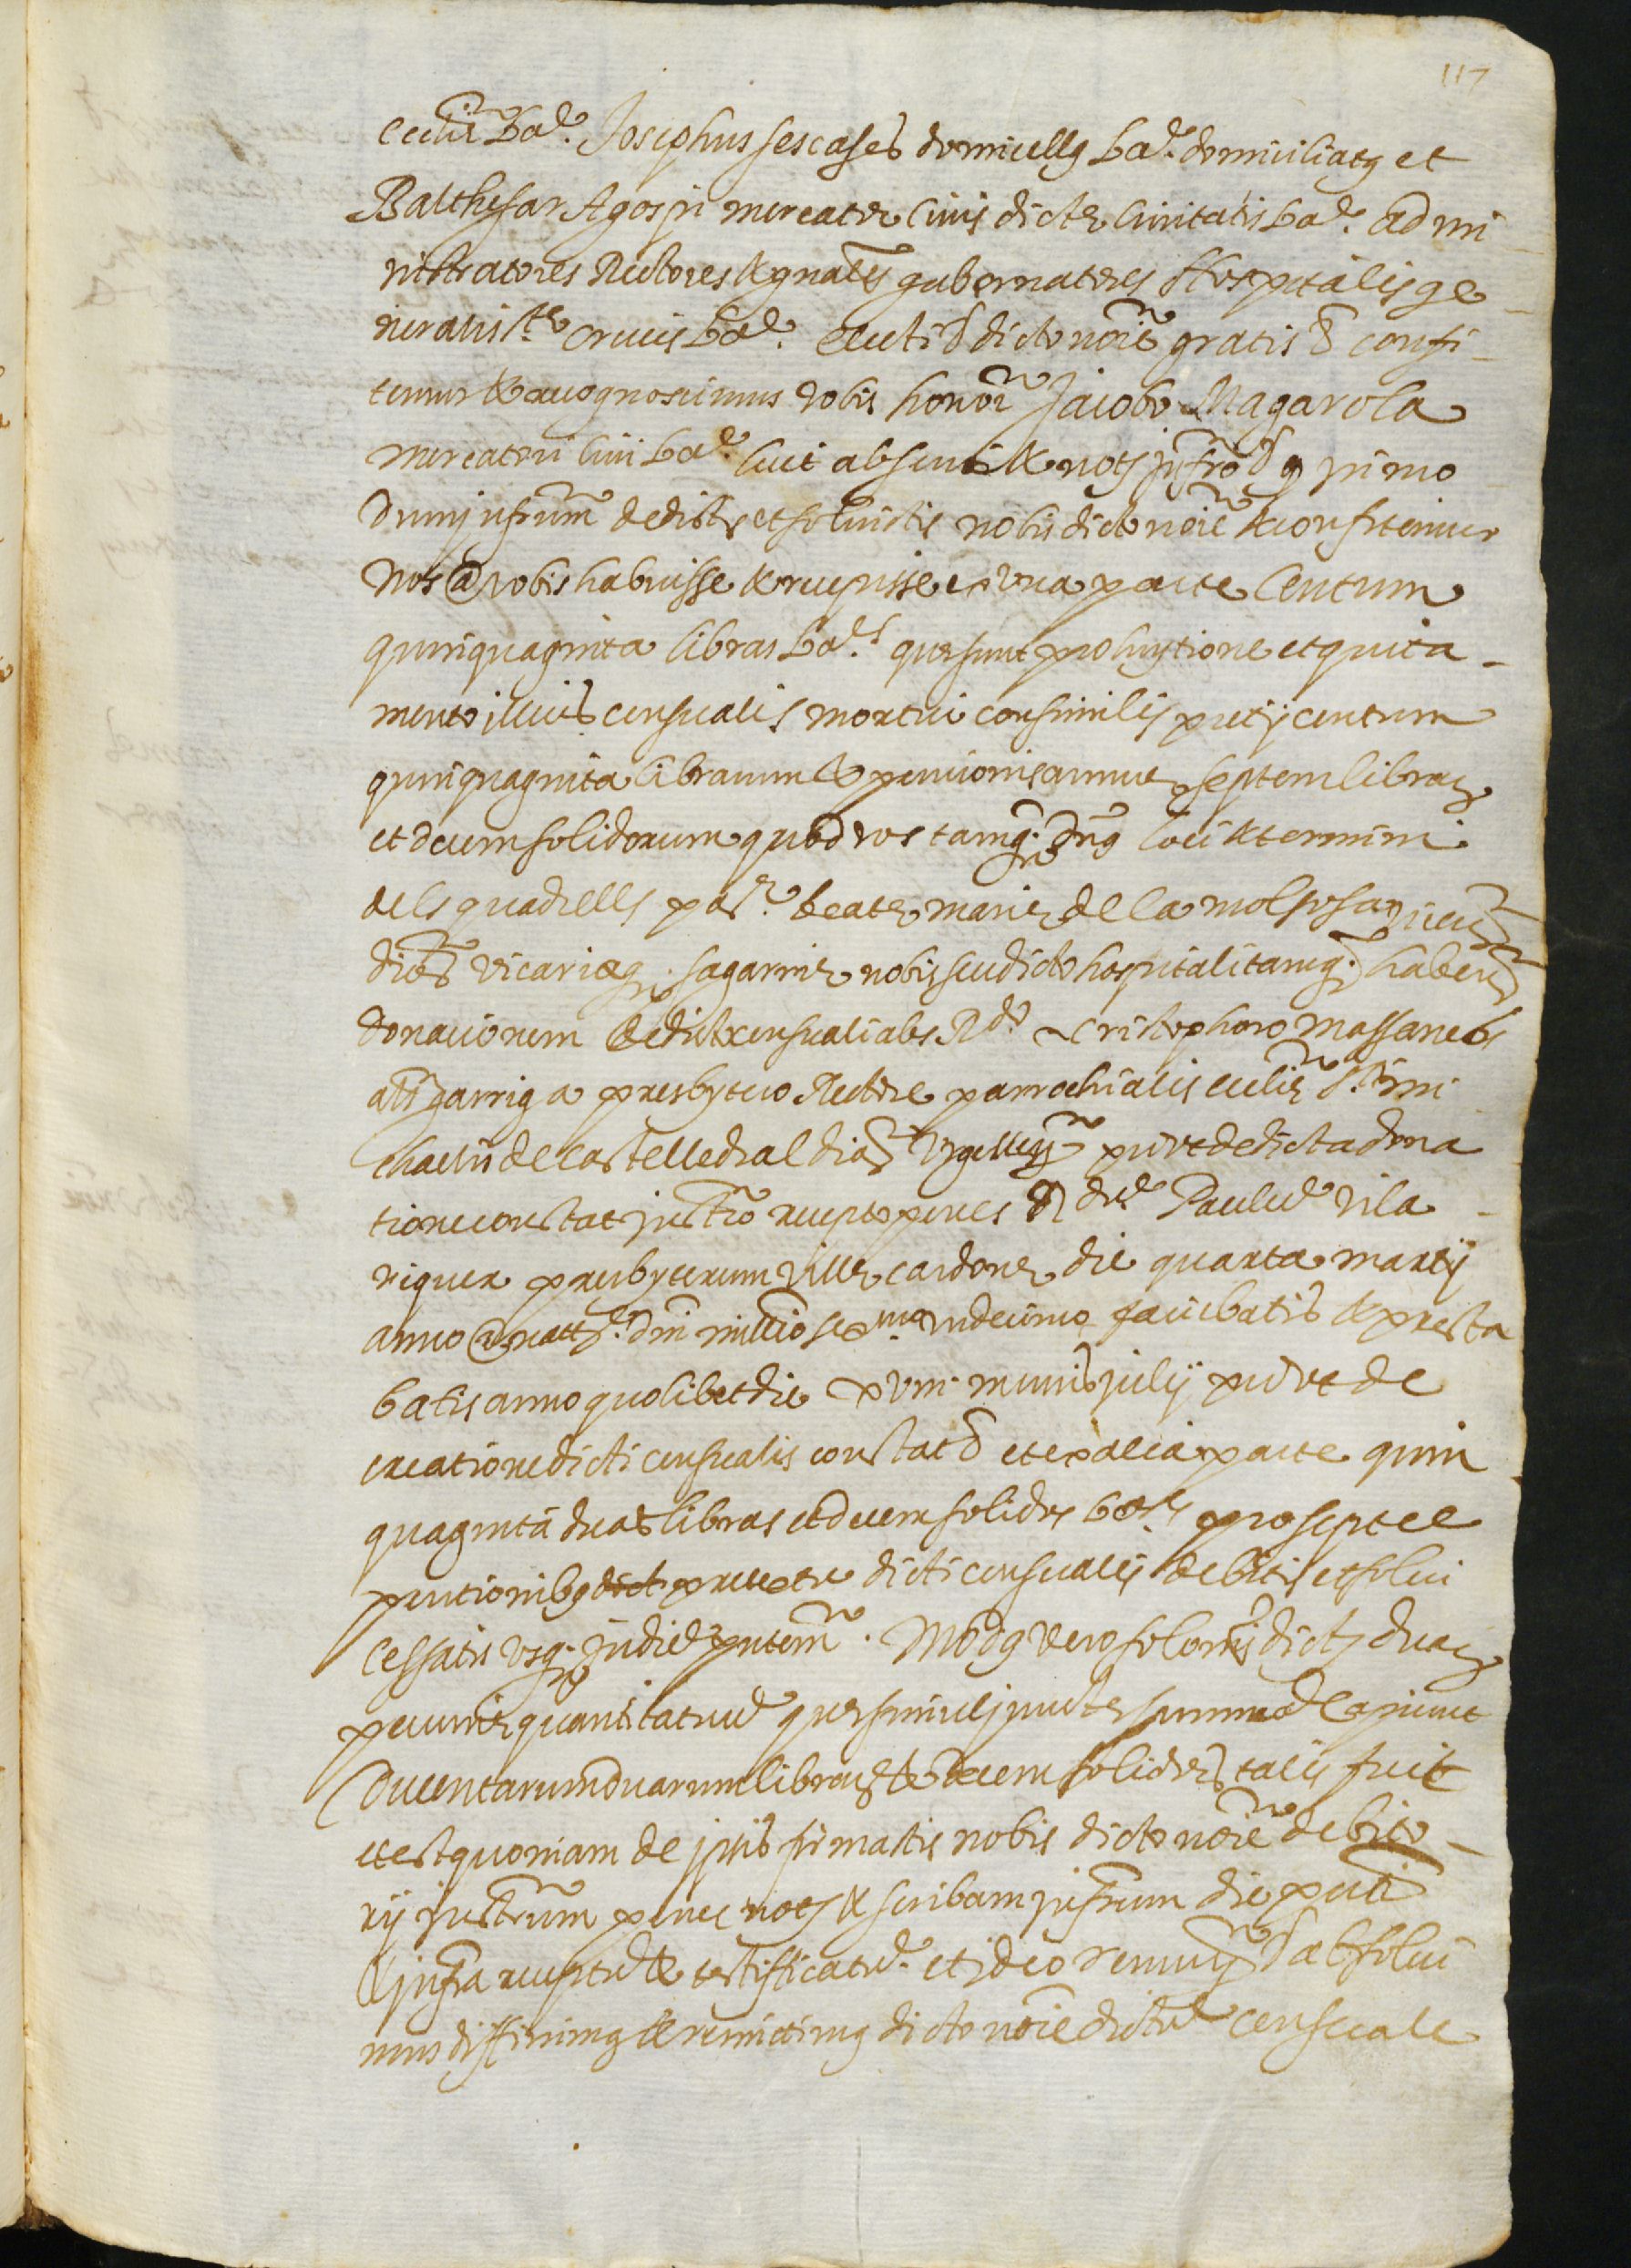 117
eccliæ Bar. Josephus sescases domicellus bar. domiciliatus et
Balthesar Agospi mercator Civis dictæ Civitatis bar. admi
nistratores Rectores & gnales gubernatores Hospitalis ge
neralis ste crucis bar. electi & dicto noie gratis & confi
temur & recognoscimus vobis honor Jacobo Magarola
mercatori Civi bar. licet absenti & notj infro & q in mo
dum infrum dedistis et solvistis nobis dicto noie & confitemur
nos a vobis habuisse & recepisse ex una parte Centum
quinquaginta libras bar.s que sunt pro luytione et quita
mento illius censualis mortui consimilis pretij centum
quinquaginta librarum & pencionis annue septem librar
et decem solidorum quod vos tamq. dns loci & termini
dels quadrells par. beate marie de la molsosa vicen
dios vicariæq. sagarrie nobis seu dicto hospitali tamq. haben
donacionem de dict censuali abs Rdo Cristophoro massanebs
als garriga presbytero Rectore parrochialis eccliæ sti mi
chaelis de castelledral dios Urgellen prout de dicta dona
tione constat instro recepto penes R drem Paulum vila
riquer presbyterum ville cardone die quarta martij
anno a natt. dni millio sexmo undecimo faciebatis & presta
batis anno quolibet die xviii mensis julij prout de
creatione dicti censualis constat & et ex alia parte quin
quaginta duas libras et decem solidos bar.s pro septe
pentionibus preterite dicti censualis debitis et solui
cessatis usq. in diem pntem. Modus vero solonis dictar duar
pecunie quantitatum que simul juncte summam capiunt
Ducentarum duarum librar & decem solidor talis fuit
et est quoniam de ipsis firmastis nobis dicto noie debito
rij instrum penes notj & scribam infrum die pnti
& infra receptum & testificatum et ideo renun & absolui
mus diffinimus & remittimus dicto noie dictum censuale